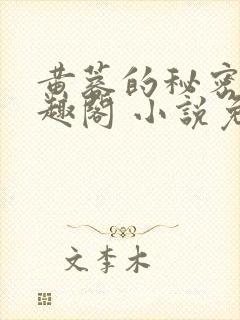 黄蓉的秘密
趣阁 小説免
文李木